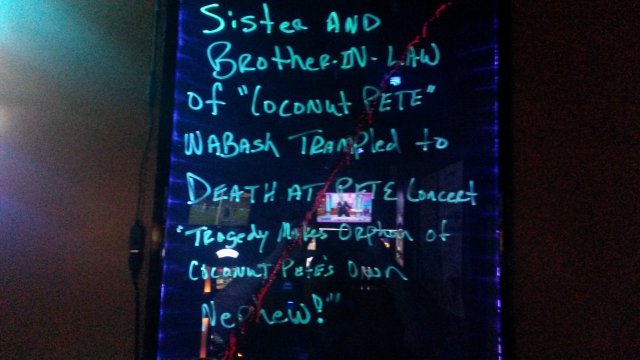 Sister AND
Brother-IN-LAW
of "Coconut PETE"
WABASH TRAMPled to
DEATH AT PETE Concert
"Tragedy Makes Orphan of
Coconut Pete's Own
Nephew!"